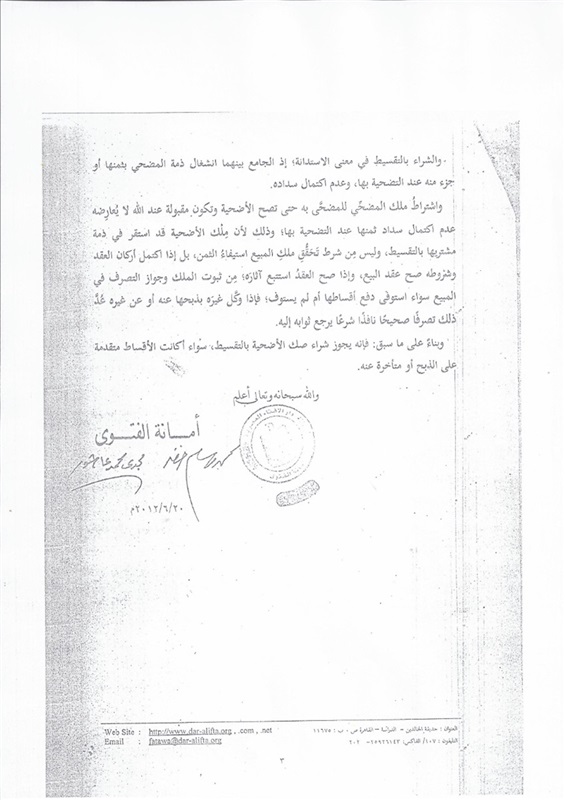 والشراء بالتقسيط في معنى الاستدانة؛ إذ الجامع بينهما انشغال ذمة المضحي بثمنها أو
جزء منه عند التضحية بها، وعدم اكتمال سداده.
واشتراطُ ملك المضحِّي للمضحَّى به حتى تصح الأضحية وتكون مقبولة عند الله لا يُعارِضه
عدم اكتمال سداد ثمنها عند التضحية بها؛ وذلك لأن مِلْك الأضحية قد استقر في ذمة
مشتريها بالتقسيط، وليس مِن شرط تَحَقُّقِ ملكِ المبيع استيفاءُ الثمن، بل إذا اكتمل أركان العقد
وشروطه صح عقد البيع، وإذا صح العقدُ استتبع آثارَه؛ مِن ثبوت الملك وجواز التصرف في
المبيع سواء استوفى دفع أقساطها أم لم يستوف؛ فإذا وكَّل غيرَه بذبحها عنه أو عن غيره عُدَّ
ذلك تصرفًا صحيحًا نافذًا شرعًا يرجع ثوابه إليه.
وبناءً على ما سبق: فإنه يجوز شراء صك الأضحية بالتقسيط، سواء أكانت الأقساط متقدمة
على الذبح أو متأخرة عنه.
والله سبحانه وتعالى أعلم
أمـانة الفتـوى
٢٠١٢/٦/٢٠م
العنوان : حديقة الخالدين - الدراسة - القاهرة ص . ب : ١١٦٧٥
Web Site : http://www.dar-alifta.org , .com , .net
التليفون : ١٠٧/ الفاكس: ٢٥٩٢٦١٤٣- ٢٠٢
Email : fatawa@dar-alifta.org
٣